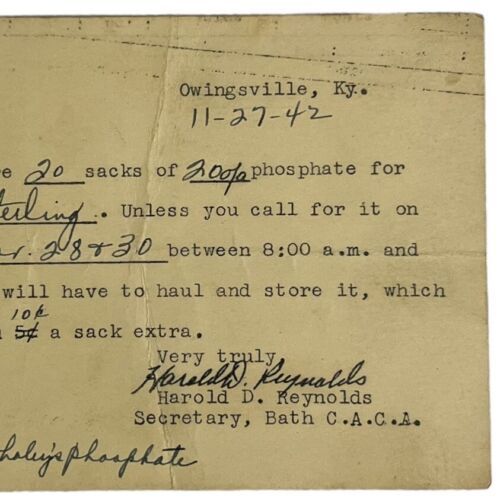 Owingsville, Ky.
11-27-42
re 20 sacks of 20% phosphate for
terling. Unless you call for it on
r. 28 & 30 between 8:00 a.m. and
will have to haul and store it, which
10¢
5¢ a sack extra.
Very truly
Harold D. Reynolds
Harold D. Reynolds
Secretary, Bath C.A.C.A.
phosphate